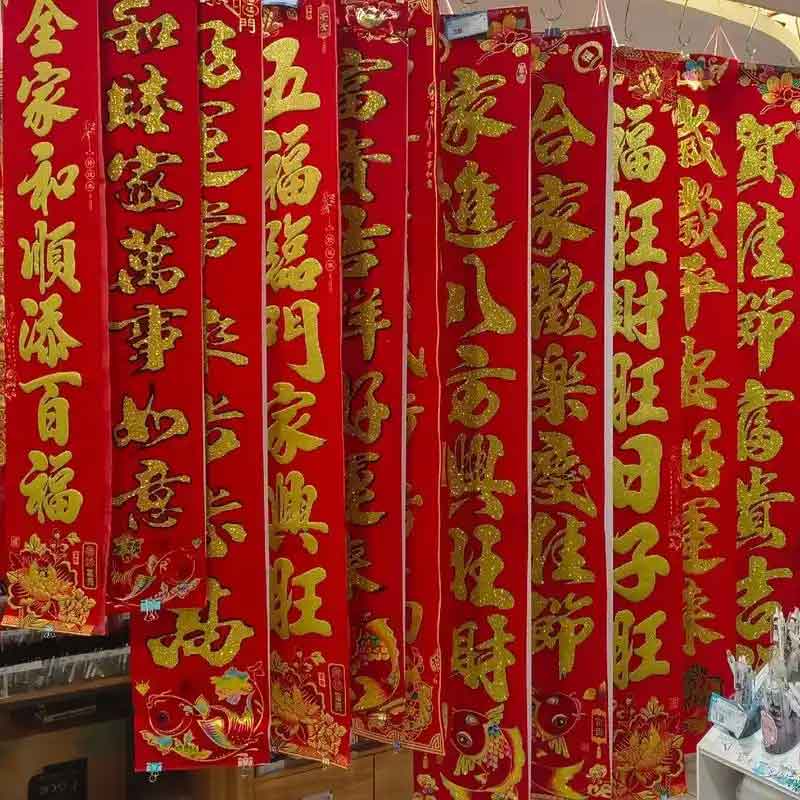 全家和順添百福
和睦家萬事如意
五福臨門家興旺
富貴吉祥好運來
家進八方興旺財
合家歡樂慶佳節
福旺財旺日子旺
歲歲平安好運來
賀佳節富貴吉